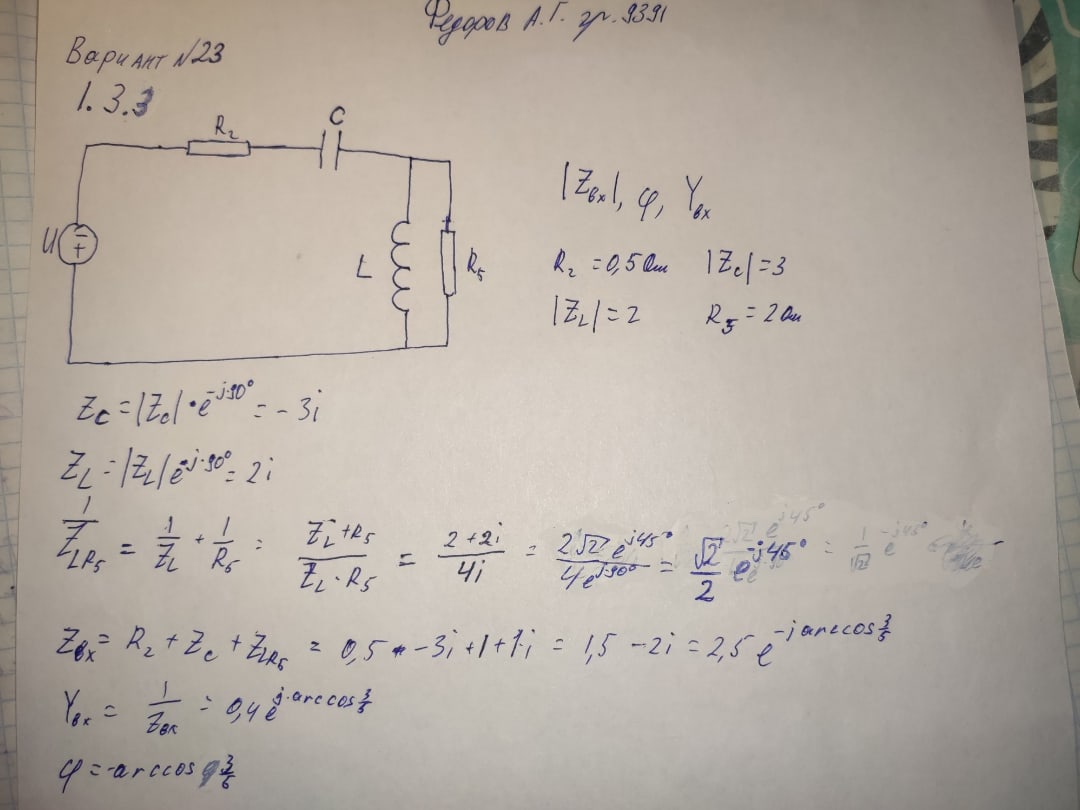 Федоров А.Г. гр. 9391
Вариант №23
1.3.3
R₂
C
U
L
R₅
|Zвх|, φ, Yвх
R₂ = 0,5 Ом |Zc| = 3
|ZL| = 2 R₅ = 2 Ом
Zc = |Zc| · e^(-j90°) = - 3i
ZL = |ZL| e^(j·90°) = 2i
1/ZLR₅ = 1/ZL + 1/R₅ = (ZL + R₅)/(ZL · R₅) = (2 + 2i)/4i = (2√2 e^(j45°))/(4e^(j·90°)) = √2/2 e^(-j45°) = 1/√2 e^(-j45°)
Zвх = R₂ + Zc + ZLR₅ = 0,5 - 3i + 1 + 1·i = 1,5 - 2i = 2,5 e^(-j arccos 3/5)
Yвх = 1/Zвх = 0,4 e^(j·arccos 3/5)
φ = -arccos 3/5